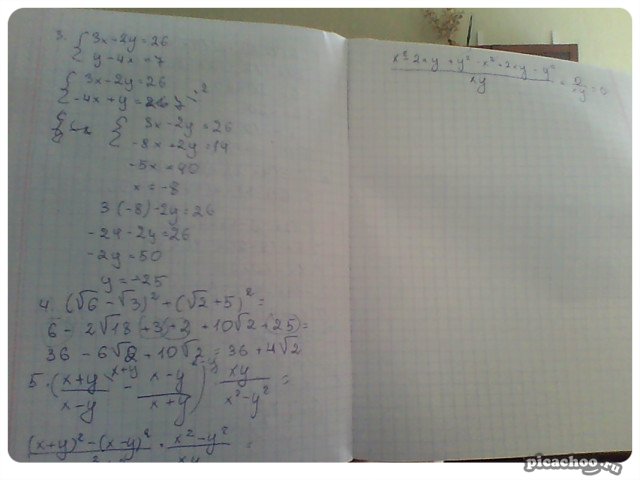 3. { 3x-2y=26
y-4x=7
{ 3x-2y=26
-4x+y=7 |·2
{ 3x-2y=26
-8x+2y=14
-5x=40
x=-8
3(-8)-2y=26
-24-2y=26
-2y=50
y=-25
4. (√6-√3)²+(√2+5)²=
6-2√18+3+2+10√2+25=
36-6√2+10√2=36+4√2
5. ((x+y)/(x-y) - (x-y)/(x+y)) : xy/(x²-y²) =
(x+y)²-(x-y)² · x²-y² =
xy
x²-2xy+y²-x²+2xy-y²
xy = 0/xy = 0
picachoo.ru